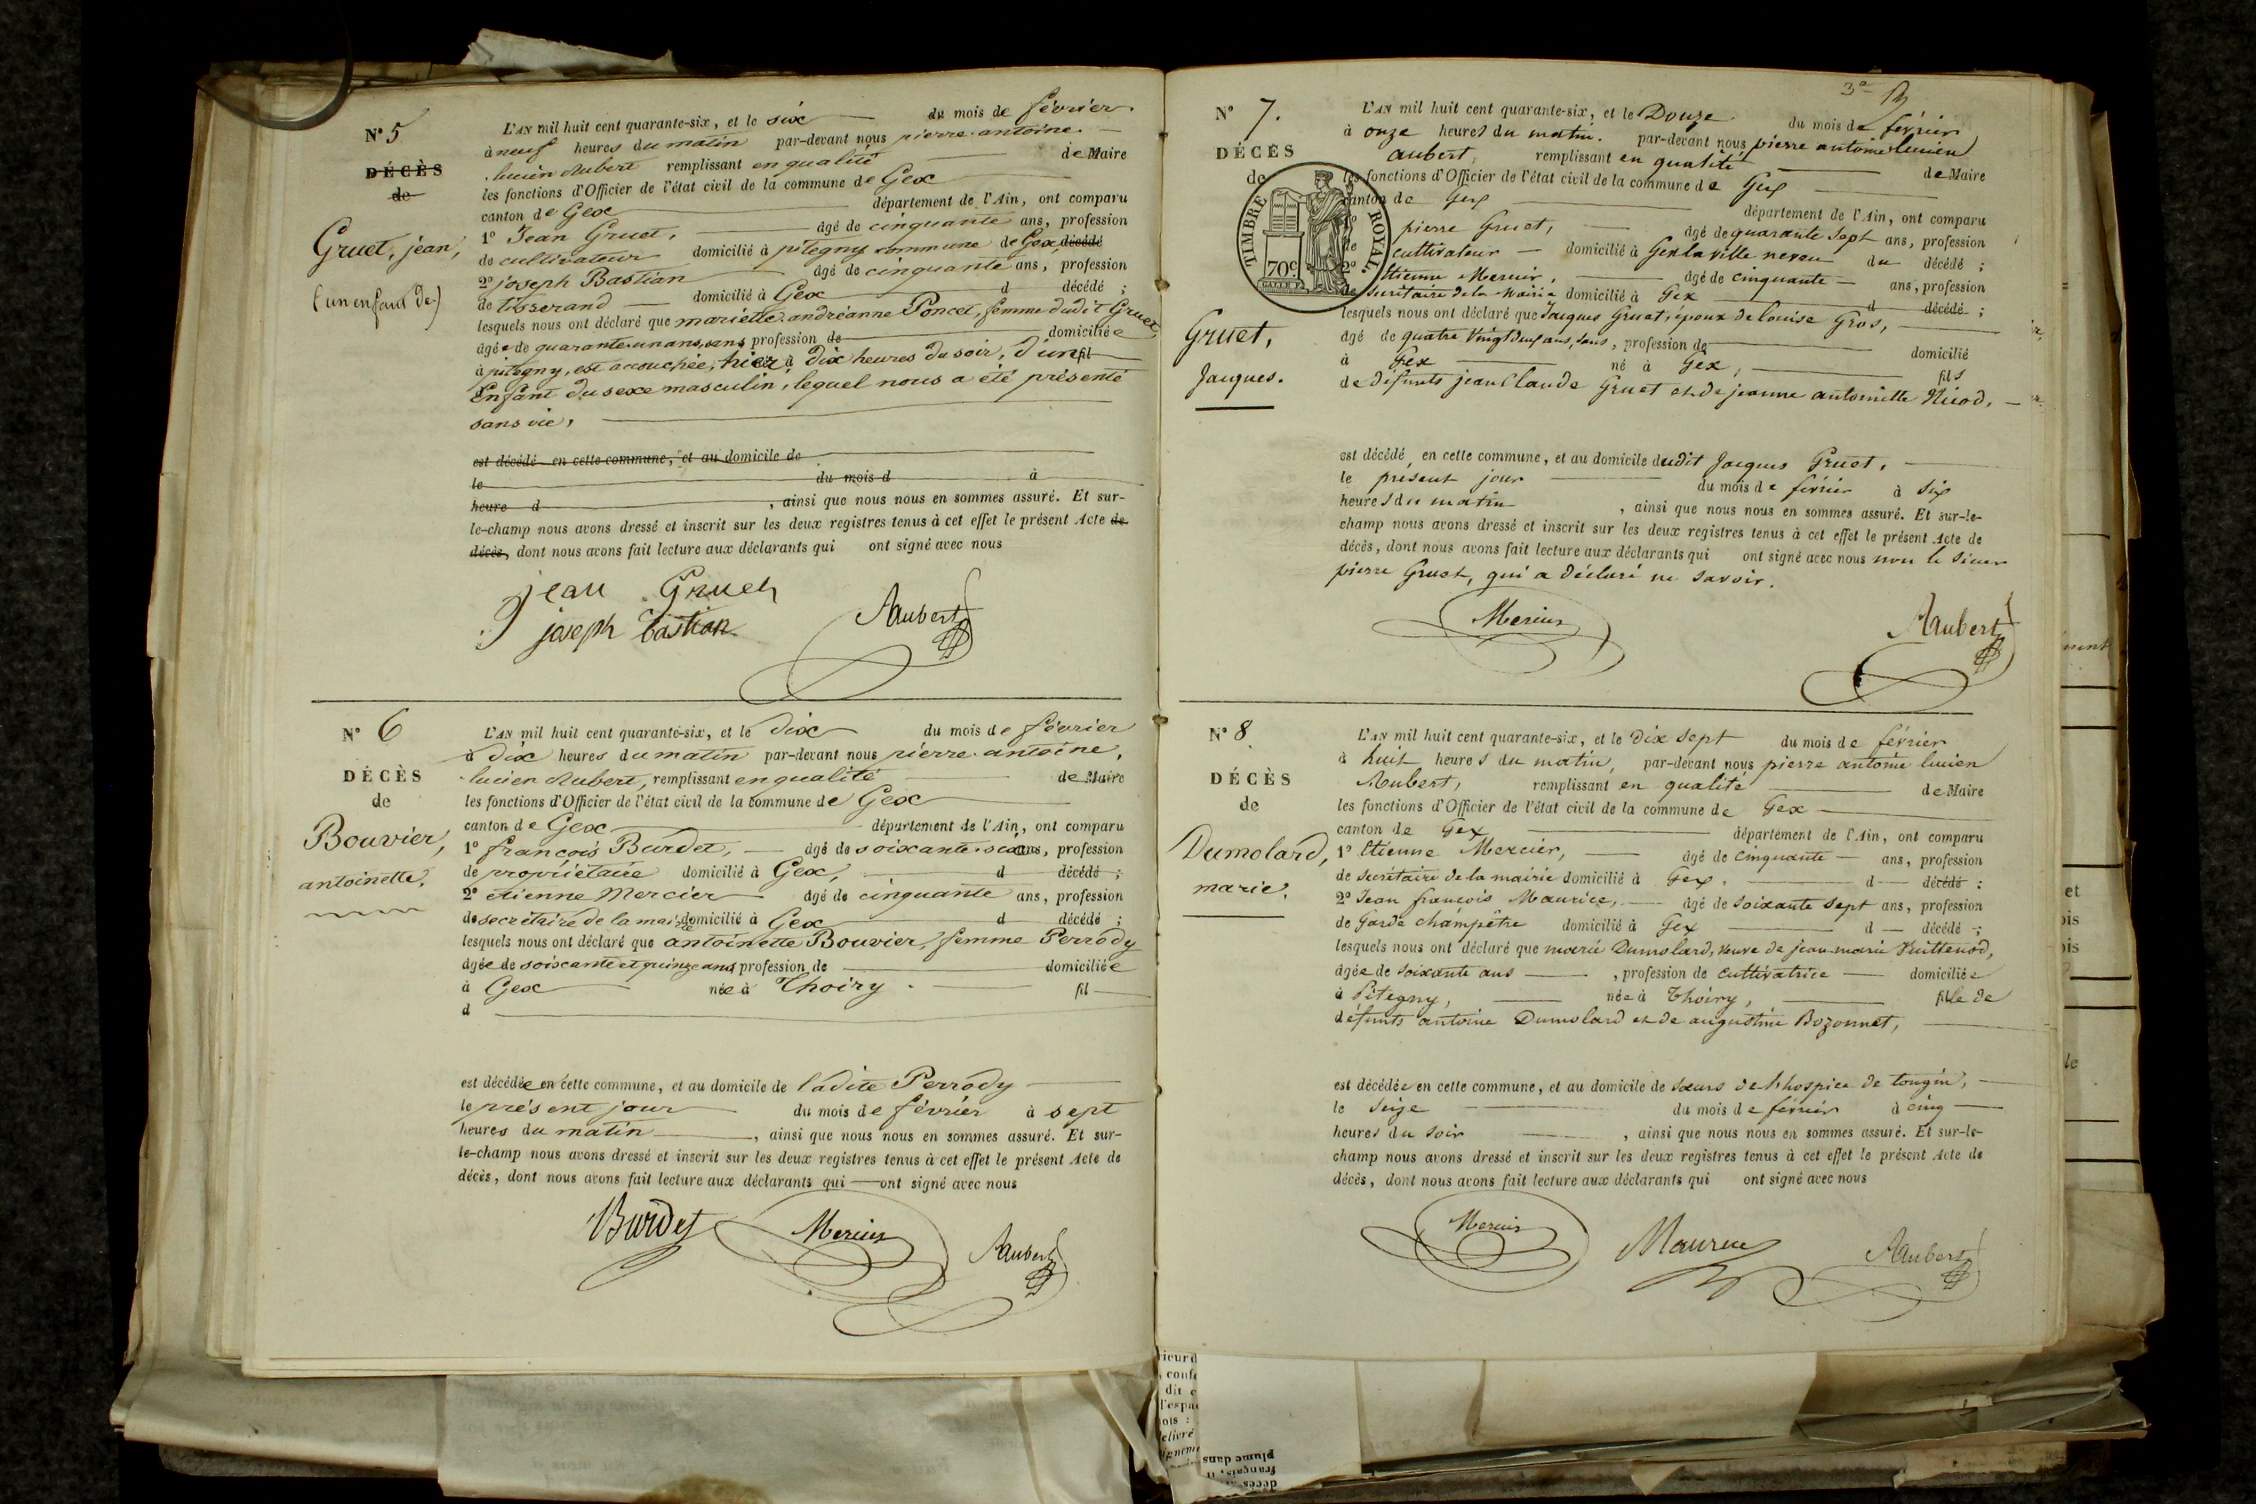 N° 5
DÉCÈS
de
Gruet, jean,
(un enfant de)
L'AN mil huit cent quarante-six, et le six du mois de février
à neuf heures du matin par-devant nous pierre antoine
lucien Aubert remplissant en qualité de Maire
les fonctions d'Officier de l'état civil de la commune de Gex
canton de Gex département de l'Ain, ont comparu
1° Jean Gruet, âgé de cinquante ans, profession
de cultivateur domicilié à pitegny commune de Gex, décédé
2° joseph Bastian âgé de cinquante ans, profession
de tisserand domicilié à Gex d décédé ;
lesquels nous ont déclaré que mariette andréanne Poncet, femme dudit Gruet,
âgée de quarante-un ans, sans profession de domiciliée
à pitegny, est accouchée, hier à dix heures du soir, d'un fil
Enfant du sexe masculin, lequel nous a été présenté
sans vie,
est décédé en cette commune, et au domicile de
le du mois d à
heure d , ainsi que nous nous en sommes assuré. Et sur-
le-champ nous avons dressé et inscrit sur les deux registres tenus à cet effet le présent Acte de
décès, dont nous avons fait lecture aux déclarants qui ont signé avec nous
jean Gruet
joseph bastian Aubert
N° 6
DÉCÈS
de
Bouvier,
antoinette.
L'AN mil huit cent quarante-six, et le dix du mois de février
à dix heures du matin par-devant nous pierre antoine,
lucien Aubert, remplissant en qualité de Maire
les fonctions d'Officier de l'état civil de la commune de Gex
canton de Gex département de l'Ain, ont comparu
1° françois Burdet, âgé de soixante-six ans, profession
de propriétaire domicilié à Gex, d décédé ;
2° étienne Mercier âgé de cinquante ans, profession
de secrétaire de la mairie domicilié à Gex d décédé ;
lesquels nous ont déclaré que antoinette Bouvier, femme Perrody
âgée de soixante et quinze ans, profession de domiciliée
à Gex née à Thoiry. fil
d
est décédée en cette commune, et au domicile de ladite Perrody
le présent jour du mois de février à sept
heures du matin , ainsi que nous nous en sommes assuré. Et sur-
le-champ nous avons dressé et inscrit sur les deux registres tenus à cet effet le présent Acte de
décès, dont nous avons fait lecture aux déclarants qui ont signé avec nous
Burdet Mercier Aubert
3e
N° 7.
DÉCÈS
de
TIMBRE ROYAL
70c
Gruet,
Jacques.
L'AN mil huit cent quarante-six, et le Douze du mois de février
à onze heures du matin. par-devant nous pierre antoine lucien
aubert, remplissant en qualité de Maire
les fonctions d'Officier de l'état civil de la commune de Gex
canton de Gex département de l'Ain, ont comparu
1° pierre Gruet, âgé de quarante sept ans, profession
de cultivateur domicilié à Gex la ville neveu du décédé ;
2° Etienne Mercier, âgé de cinquante ans, profession
de secrétaire de la Mairie domicilié à Gex d décédé ;
lesquels nous ont déclaré que Jacques Gruet, époux de louise Gros,
âgé de quatre Vingt deux ans, sans, profession de domicilié
à Gex né à Gex, fils
de défunts jean Claude Gruet et de jeanne antoinette Nicod,
est décédé en cette commune, et au domicile dudit Jacques Gruet,
le présent jour du mois de février à six
heures du matin , ainsi que nous nous en sommes assuré. Et sur-le-
champ nous avons dressé et inscrit sur les deux registres tenus à cet effet le présent Acte de
décès, dont nous avons fait lecture aux déclarants qui ont signé avec nous non le sieur
pierre Gruet, qui a déclaré ne savoir.
Mercier Aubert
N° 8
DÉCÈS
de
Dumolard,
marie.
L'AN mil huit cent quarante-six, et le dix sept du mois de février
à huit heures du matin, par-devant nous pierre antoine lucien
Aubert, remplissant en qualité de Maire
les fonctions d'Officier de l'état civil de la commune de Gex
canton de Gex département de l'Ain, ont comparu
1° Etienne Mercier, âgé de cinquante ans, profession
de secrétaire de la mairie domicilié à Gex. d décédé ;
2° Jean françois Maurice, âgé de soixante sept ans, profession
de Garde champêtre domicilié à Gex d décédé ;
lesquels nous ont déclaré que marie Dumolard, veuve de jean marie Vuittenod,
âgée de soixante ans , profession de cultivatrice domiciliée
à Pitegny, née à Thoiry, fille de
défunts antoine Dumolard et de augustine Bozonnet,
est décédée en cette commune, et au domicile de sœurs de l'hospice de tougin,
le seize du mois de février à cinq
heures du soir , ainsi que nous nous en sommes assuré. Et sur-le-
champ nous avons dressé et inscrit sur les deux registres tenus à cet effet le présent Acte de
décès, dont nous avons fait lecture aux déclarants qui ont signé avec nous
Mercier Maurice Aubert